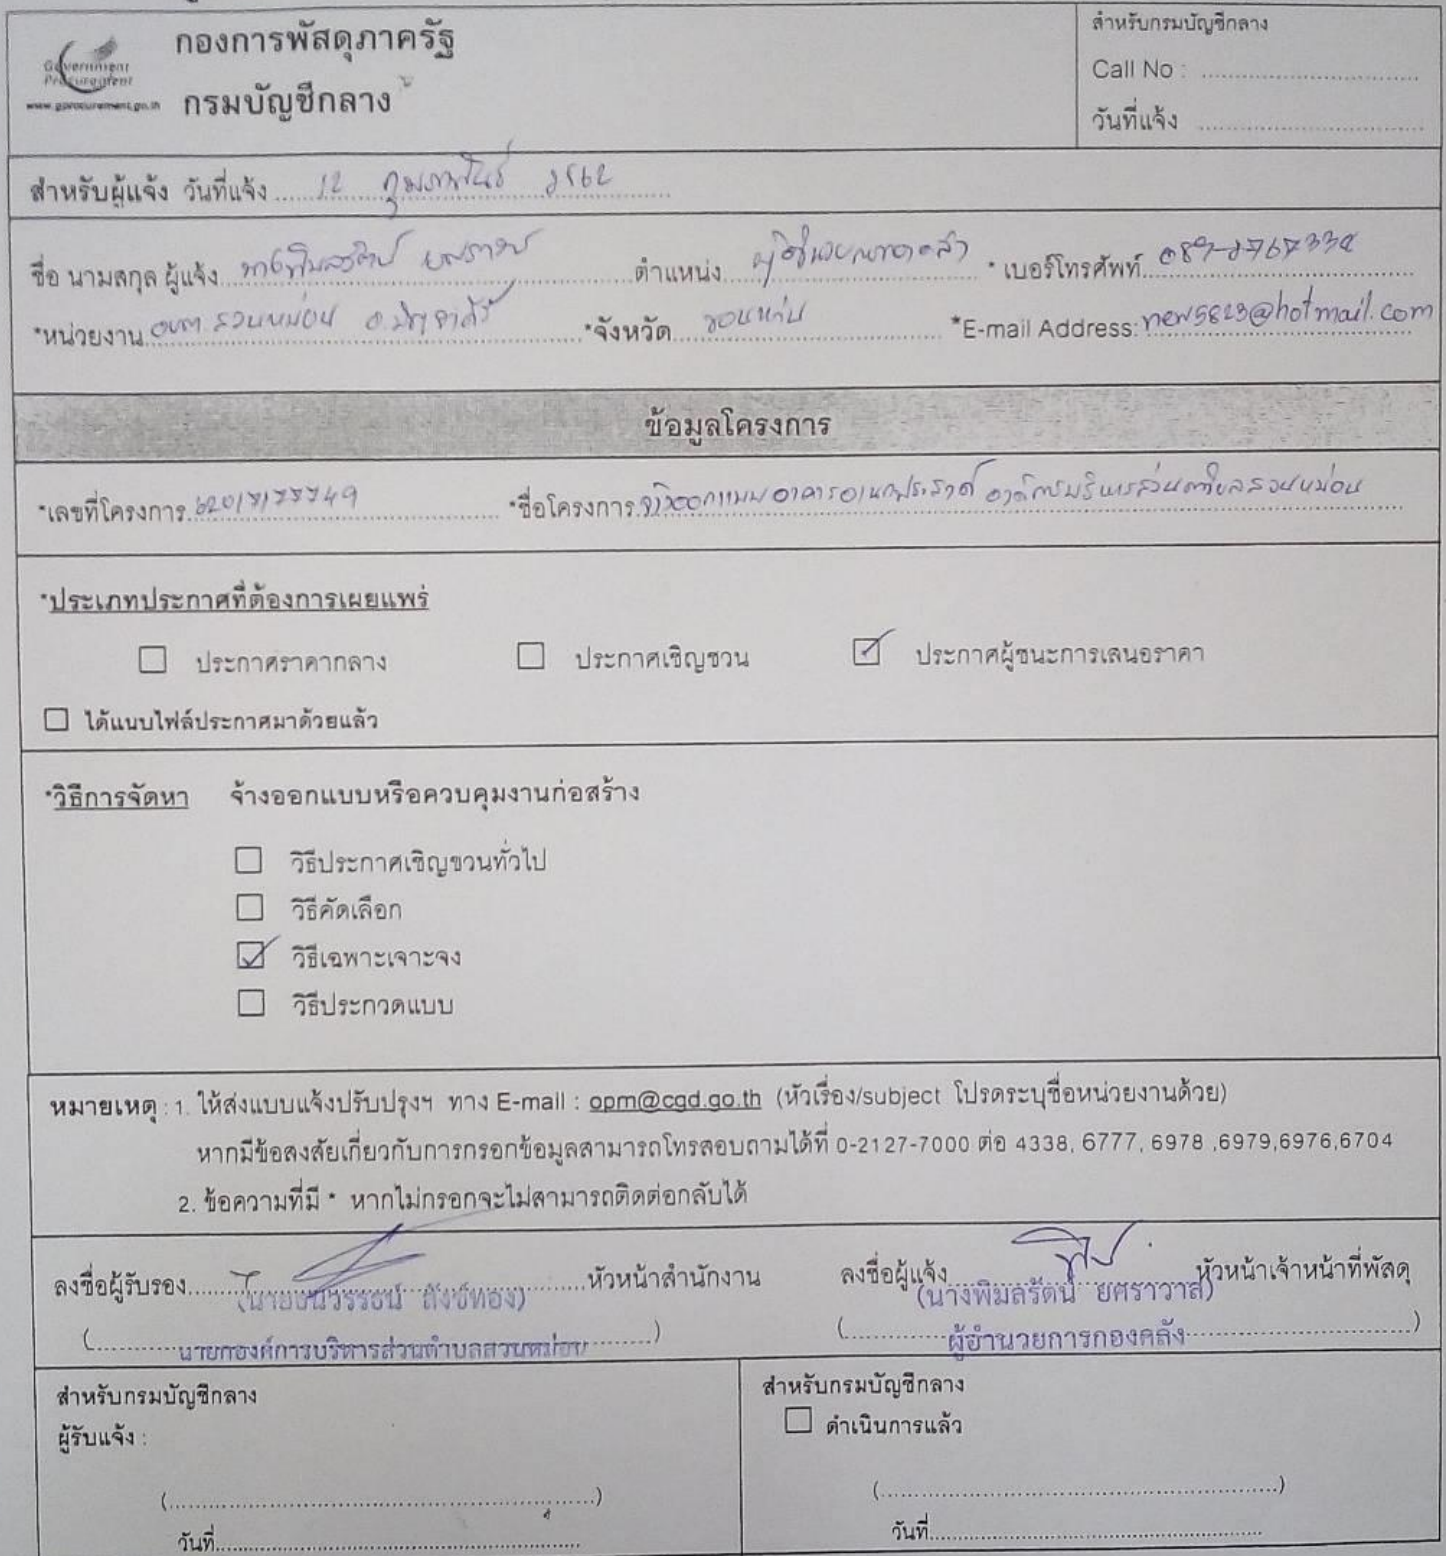 Government
Procurement
www.gprocurement.go.th
กองการพัสดุภาครัฐ
กรมบัญชีกลาง
สำหรับกรมบัญชีกลาง
Call No :
วันที่แจ้ง
สำหรับผู้แจ้ง วันที่แจ้ง 12 กุมภาพันธ์ 2562
ชื่อ นามสกุล ผู้แจ้ง นางพิมลรัตน์ ยศราวาส ตำแหน่ง ผู้อำนวยการกองคลัง * เบอร์โทรศัพท์
*หน่วยงาน อบต. สวนหม่อน อ.มัญจาคีรี *จังหวัด ขอนแก่น *E-mail Address: new5823@hotmail.com
ข้อมูลโครงการ
*เลขที่โครงการ *ชื่อโครงการ จ้างออกแบบอาคารอเนกประสงค์ องค์การบริหารส่วนตำบลสวนหม่อน
*ประเภทประกาศที่ต้องการเผยแพร่
ประกาศราคากลาง ประกาศเชิญชวน ประกาศผู้ชนะการเสนอราคา
ได้แนบไฟล์ประกาศมาด้วยแล้ว
*วิธีการจัดหา จ้างออกแบบหรือควบคุมงานก่อสร้าง
วิธีประกาศเชิญชวนทั่วไป
วิธีคัดเลือก
วิธีเฉพาะเจาะจง
วิธีประกวดแบบ
หมายเหตุ : 1. ให้ส่งแบบแจ้งปรับปรุงฯ ทาง E-mail : opm@cgd.go.th (หัวเรื่อง/subject โปรดระบุชื่อหน่วยงานด้วย)
หากมีข้อสงสัยเกี่ยวกับการกรอกข้อมูลสามารถโทรสอบถามได้ที่ 0-2127-7000 ต่อ 4338, 6777, 6978 ,6979,6976,6704
2. ข้อความที่มี * หากไม่กรอกจะไม่สามารถติดต่อกลับได้
ลงชื่อผู้รับรอง หัวหน้าสำนักงาน ลงชื่อผู้แจ้ง หัวหน้าเจ้าหน้าที่พัสดุ
(นายธนวรรธน์ สังข์ทอง) (นางพิมลรัตน์ ยศราวาส)
นายกองค์การบริหารส่วนตำบลสวนหม่อน ผู้อำนวยการกองคลัง
สำหรับกรมบัญชีกลาง
ผู้รับแจ้ง :
วันที่
สำหรับกรมบัญชีกลาง
ดำเนินการแล้ว
วันที่